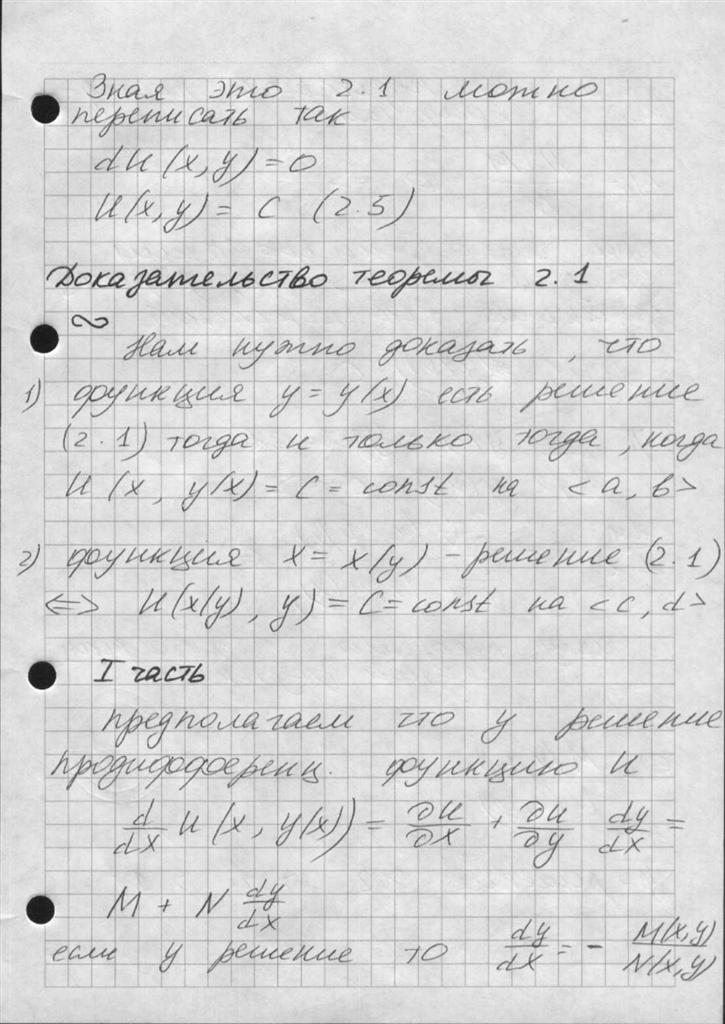 Зная это 2.1 можно
переписать так
dU(x,y)=0
U(x,y)= C (2.5)
Доказательство теоремы 2.1
Нам нужно доказать, что
1) функция y=y(x) есть решение
(2.1) тогда и только тогда, когда
U(x, y(x)= C = const на <a,b>
2) функция x= x(y) - решение (2.1)
⇔ U(x(y), y)= C=const на <c,d>
I часть
предполагаем что y решение
продифференц. функцию U
d/dx U(x, y(x)) = ∂U/∂x + ∂U/∂y dy/dx =
M + N dy/dx
если y решение то dy/dx = - M(x,y)/N(x,y)